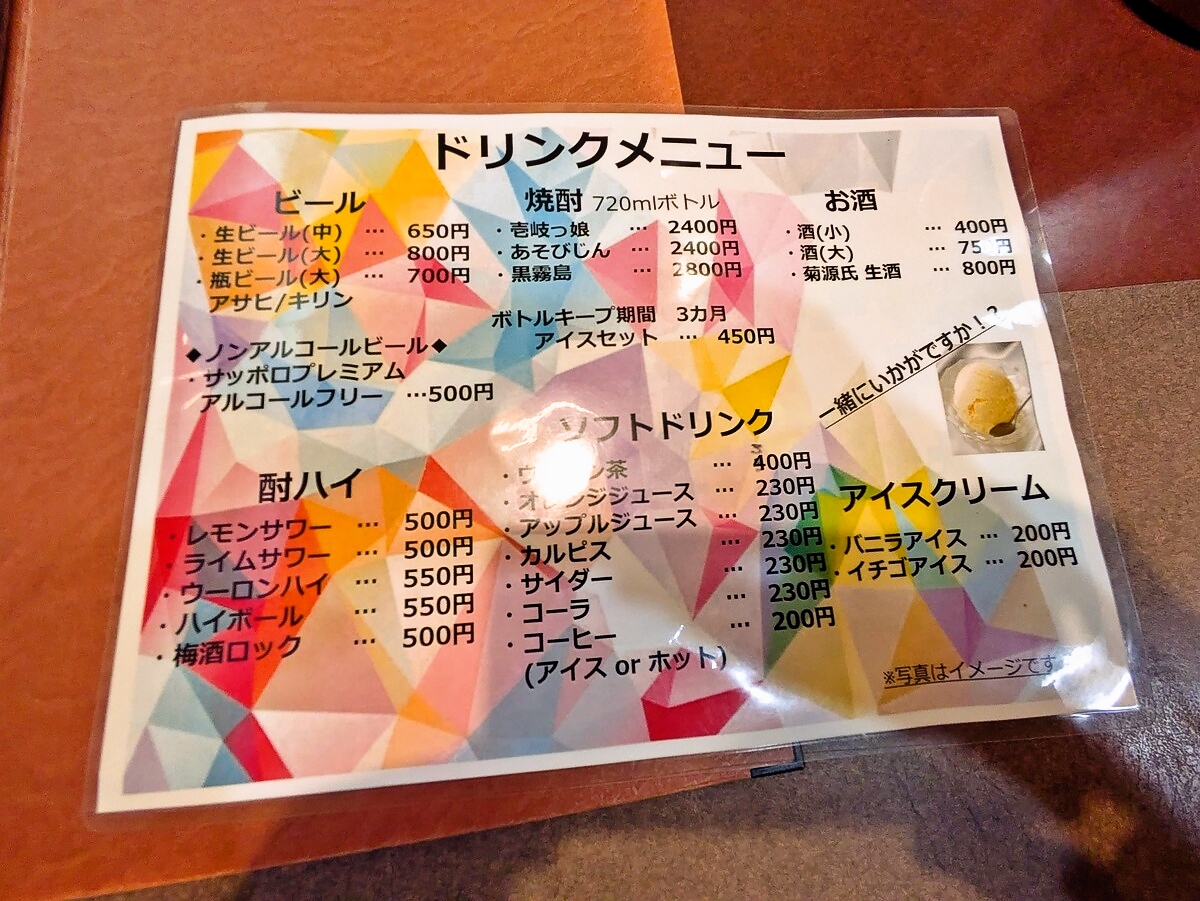 ドリンクメニュー
ビール
・生ビール(中) … 650円
・生ビール(大) … 800円
・瓶ビール(大) … 700円
アサヒ/キリン
◆ノンアルコールビール◆
・サッポロプレミアム
アルコールフリー …500円
酎ハイ
・レモンサワー … 500円
・ライムサワー … 500円
・ウーロンハイ … 550円
・ハイボール … 550円
・梅酒ロック … 500円
焼酎 720mlボトル
・壱岐っ娘 … 2400円
・あそびじん … 2400円
・黒霧島 … 2800円
ボトルキープ期間 3カ月
アイスセット … 450円
ソフトドリンク
・ウーロン茶 … 400円
・オレンジジュース … 230円
・アップルジュース … 230円
・カルピス … 230円
・サイダー … 230円
・コーラ … 230円
・コーヒー … 200円
(アイス or ホット)
お酒
・酒(小) … 400円
・酒(大) …
・菊源氏 生酒 … 800円
一緒にいかがですか！？
アイスクリーム
・バニラアイス … 200円
・イチゴアイス … 200円
※写真はイメージです